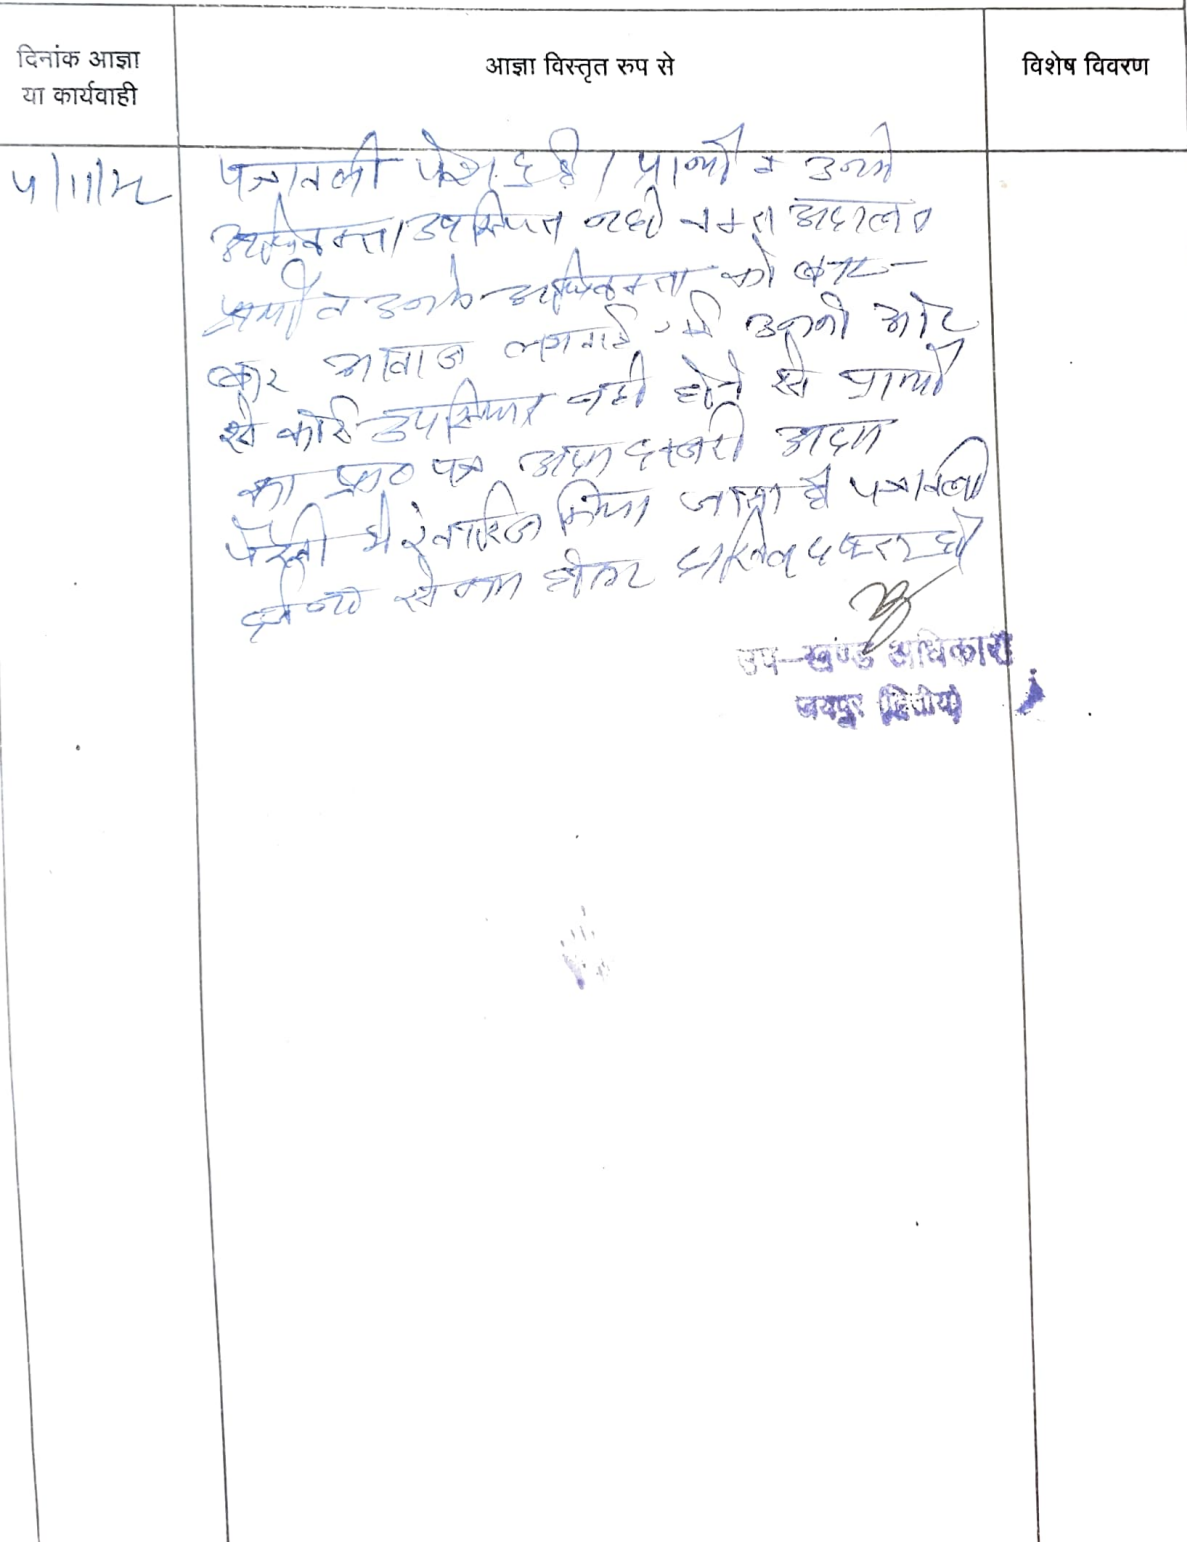 दिनांक आज्ञा
या कार्यवाही
आज्ञा विस्तृत रुप से
विशेष विवरण
पत्रावली पेश हुई। प्रार्थी व उनके
अधिवक्ता उपस्थित नहीं वक्त अदालत
प्रार्थी व उनके अधिवक्ता को बार-
बार आवाज लगवाई गई उनकी ओर
से कोई उपस्थित नहीं होने से प्रार्थी
का प्रा० पत्र अदम हाजरी अदम
पैरवी में खारिज किया जाता है पत्रावली
होकर दाखिल दफ्तर हो
उप-खण्ड अधिकारी
जयपुर (द्वितीय)